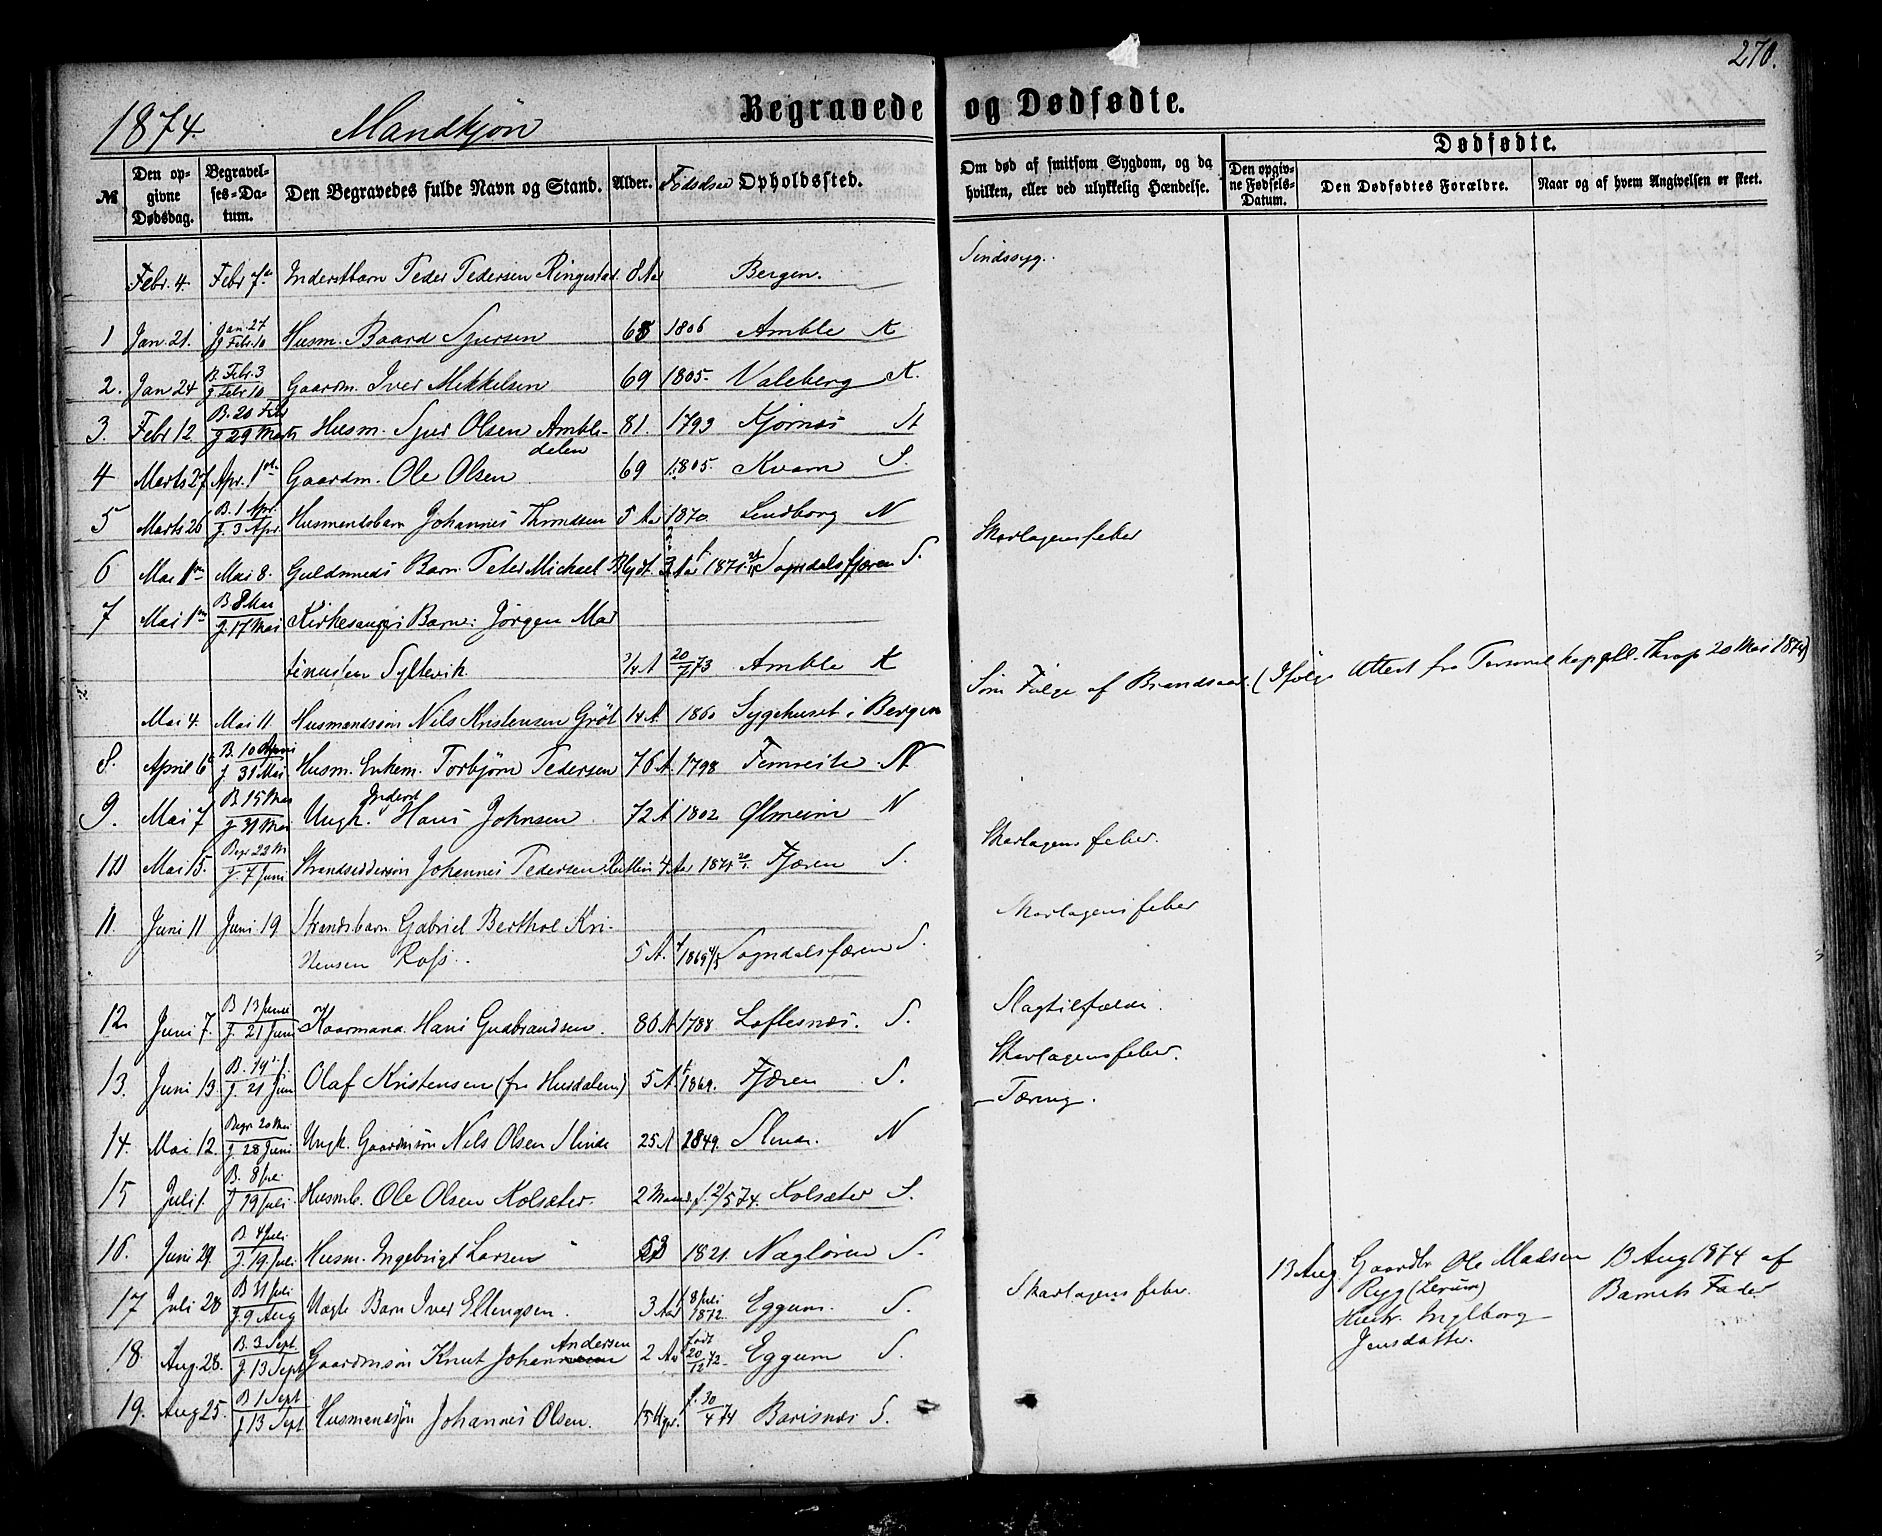 270.
1874. Mandkjøn Begravede og Dødfødte.
№ Den opgivne Dødsdag. Begravelses-Datum. Den Begravedes fulde Navn og Stand. Alder. Fødselsaar Opholdssted. Om død af smitsom Sygdom, og da hvilken, eller ved ulykkelig Hændelse. Dødfødte. Den opgivne Fødsels-Datum. Den Dødfødtes Forældre. Naar og af hvem Angivelsen er skeet.
Febr. 4. Febr 7de Inderstbarn Peder Pedersen Ringestad. 8 Aar Bergen. Sindssyg.
1 Jan. 21. Jan. 27 J Febr. 10 Husm. Baard Sjursen 68 1806 Amble K
2. Jan 24 B. Febr. 3 J. Febr 10 Gaardm. Iver Mikkelsen 69 1805. Valeberg K.
3. Febr 12 B. 20 Feb J 29 Marts Husm. Sjur Olsen Ambledalen 81. 1793 Kjørnes
4 Marts 27 Apr. 1ste Gaardm. Ole Olsen 69 1805. Kvam S.
5 Marts 26 B. 1 Apr. J. 3 Apr Husmandsbarn Johannes Thrundsen 5 Aar 1870. Lindborg N Skarlagensfeber
6 Mai 1ste Mai 8. Guldsmeds Barn Peter Michael Blydt. 3 Aar 1871 Sogndalsfjæren S.
7 Mai 1ste B 8 Mai J. 17 Mai Kirkesangers Barn: Jørgen Martinusen Syltevik. 3/4 A 20/7 73 Amble K
Mai 4. Mai 11 Husmandssøn Nils Kristensen Grøt 14 A 1860 Sygehuset i Bergen Som Følge af Brandsaar. (Ifølge Attest fra Personel kapell. Thrap 20 Mai 1874)
8. April 6 B. 10 April J 31 Mai Husm. Enkem. Torbjørn Pedersen 76 A. 1798 Fimreite N.
9. Mai 7 B 15 Mai J. 31 Mai Ungk. Inderst Hans Johnsen 72 A 1802 Ølmeim N
10 Mai 15. Begr 22 M J 7 Juni Strandsiddersøn Johannes Pedersen 4 Aar 1871 Fjæren S. Skarlagensfeber.
11. Juni 11 Juni 19 Strandsbarn Gabriel Berthol Kristensen Ross. 5 A. 1869 4/5 Sogndalsfæren S. Skarlagensfeber
12. Juni 7. B 13 Juni J. 21 Juni Kaarmand Hans Gudbrandsen. 86 A 1788 Loftesnæs. S. Slagtilfælde.
13. Juni 13. B. 19 J. J. 21 Juni Olaf Kristensen (fra Husdalen) 5 A. 1869. Fjæren S. Skarlagensfeber.
14. Mai 12. Begr 20 Mai J. 28 Juni Ungk. Gaardmsøn Nils Olsen Slinde 25 A 1849. Slinde. N Tæring.
15 Juli 1. B. 8 Jul J 19 Juli Husmb. Ole Olsen Kolsæter. 2 Maan. f. 2/5 74. Kolsæter S.
16. Juni 29 B 4 Juli. J. 19. Juli Husm. Ingebrigt Larsen 53 1821. Nagløren S.
17 Juli 28 B 31 Juli J. 9 Aug Uægte Barn Iver Ellingsen. 3 Aar 8 Juli 1872. Eggum. S. Skarlagensfeber.
13 Aug Gaardbr Ole Madsen Ryg (Lerum) Hustr. Ingeborg Jensdatter. 13 Aug 1874 af Barnets Fader
18. Aug. 28. B. 3 Sept J 13 Sept Gaardmsøn Knut Johannesen Andersen 2 Aar født 20/12 72 Eggum S.
19. Aug 25. B 1 Sept J 13 Sept Husmandssøn Johannes Olsen. 15 Uger. f. 30/4 74 Barsnæs S.